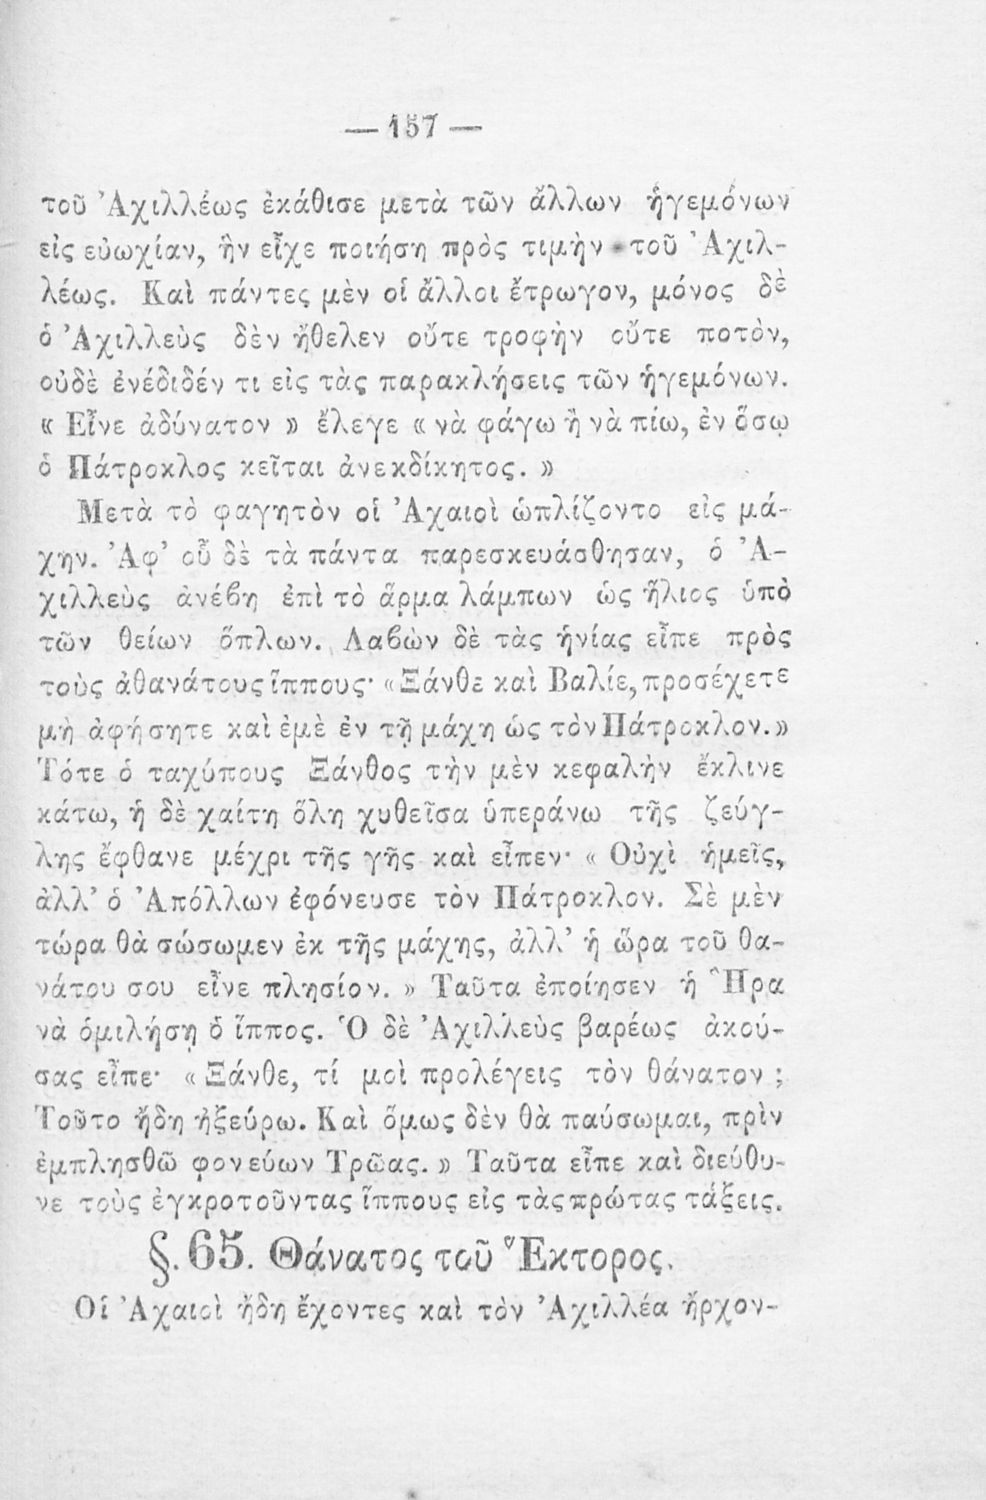 — 157 —
τοῦ Ἀχιλλέως ἐκάθισε μετὰ τῶν ἄλλων ἡγεμόνων
εἰς εὐωχίαν, ἣν εἶχε ποιήσῃ πρὸς τιμὴν τοῦ Ἀχιλ-
λέως. Καὶ πάντες μὲν οἱ ἄλλοι ἔτρωγον, μόνος δὲ
ὁ Ἀχιλλεὺς δὲν ἤθελεν οὔτε τροφὴν οὔτε ποτὸν,
οὐδὲ ἐνέδιδέν τι εἰς τὰς παρακλήσεις τῶν ἡγεμόνων.
« Εἶνε ἀδύνατον » ἔλεγε « νὰ φάγω ἢ νὰ πίω, ἐν ὅσῳ
ὁ Πάτροκλος κεῖται ἀνεκδίκητος. »
Μετὰ τὸ φαγητὸν οἱ Ἀχαιοὶ ὡπλίζοντο εἰς μά-
χην. Ἀφ’ οὗ δὲ τὰ πάντα παρεσκευάσθησαν, ὁ Ἀ-
χιλλεὺς ἀνέβη ἐπὶ τὸ ἅρμα λάμπων ὡς ἥλιος ὑπὸ
τῶν θείων ὅπλων. Λαβὼν δὲ τὰς ἡνίας εἶπε πρὸς
τοὺς ἀθανάτους ἵππους· «Ξάνθε καὶ Βαλίε, προσέχετε
μὴ ἀφήσητε καὶ ἐμὲ ἐν τῇ μάχῃ ὡς τὸν Πάτροκλον.»
Τότε ὁ ταχύπους Ξάνθος τὴν μὲν κεφαλὴν ἔκλινε
κάτω, ἡ δὲ χαίτη ὅλη χυθεῖσα ὑπεράνω τῆς ζεύγ-
λης ἔφθανε μέχρι τῆς γῆς καὶ εἶπεν· « Οὐχὶ ἡμεῖς,
ἀλλ’ ὁ Ἀπόλλων ἐφόνευσε τὸν Πάτροκλον. Σὲ μὲν
τώρα θὰ σώσωμεν ἐκ τῆς μάχης, ἀλλ’ ἡ ὥρα τοῦ θα-
νάτου σου εἶνε πλησίον. » Ταῦτα ἐποίησεν ἡ Ἥρα
νὰ ὁμιλήσῃ ὁ ἵππος. Ὁ δὲ Ἀχιλλεὺς βαρέως ἀκού-
σας εἶπε· « Ξάνθε, τί μοὶ προλέγεις τὸν θάνατον ;
Τοῦτο ἤδη ἠξεύρω. Καὶ ὅμως δὲν θὰ παύσωμαι, πρὶν
ἐμπλησθῶ φονεύων Τρῶας. » Ταῦτα εἶπε καὶ διεύθυ-
νε τοὺς ἐγκροτοῦντας ἵππους εἰς τὰς πρώτας τάξεις.
§. 65. Θάνατος τοῦ Ἕκτορος.
Οἱ Ἀχαιοὶ ἤδη ἔχοντες καὶ τὸν Ἀχιλλέα ἤρχον-